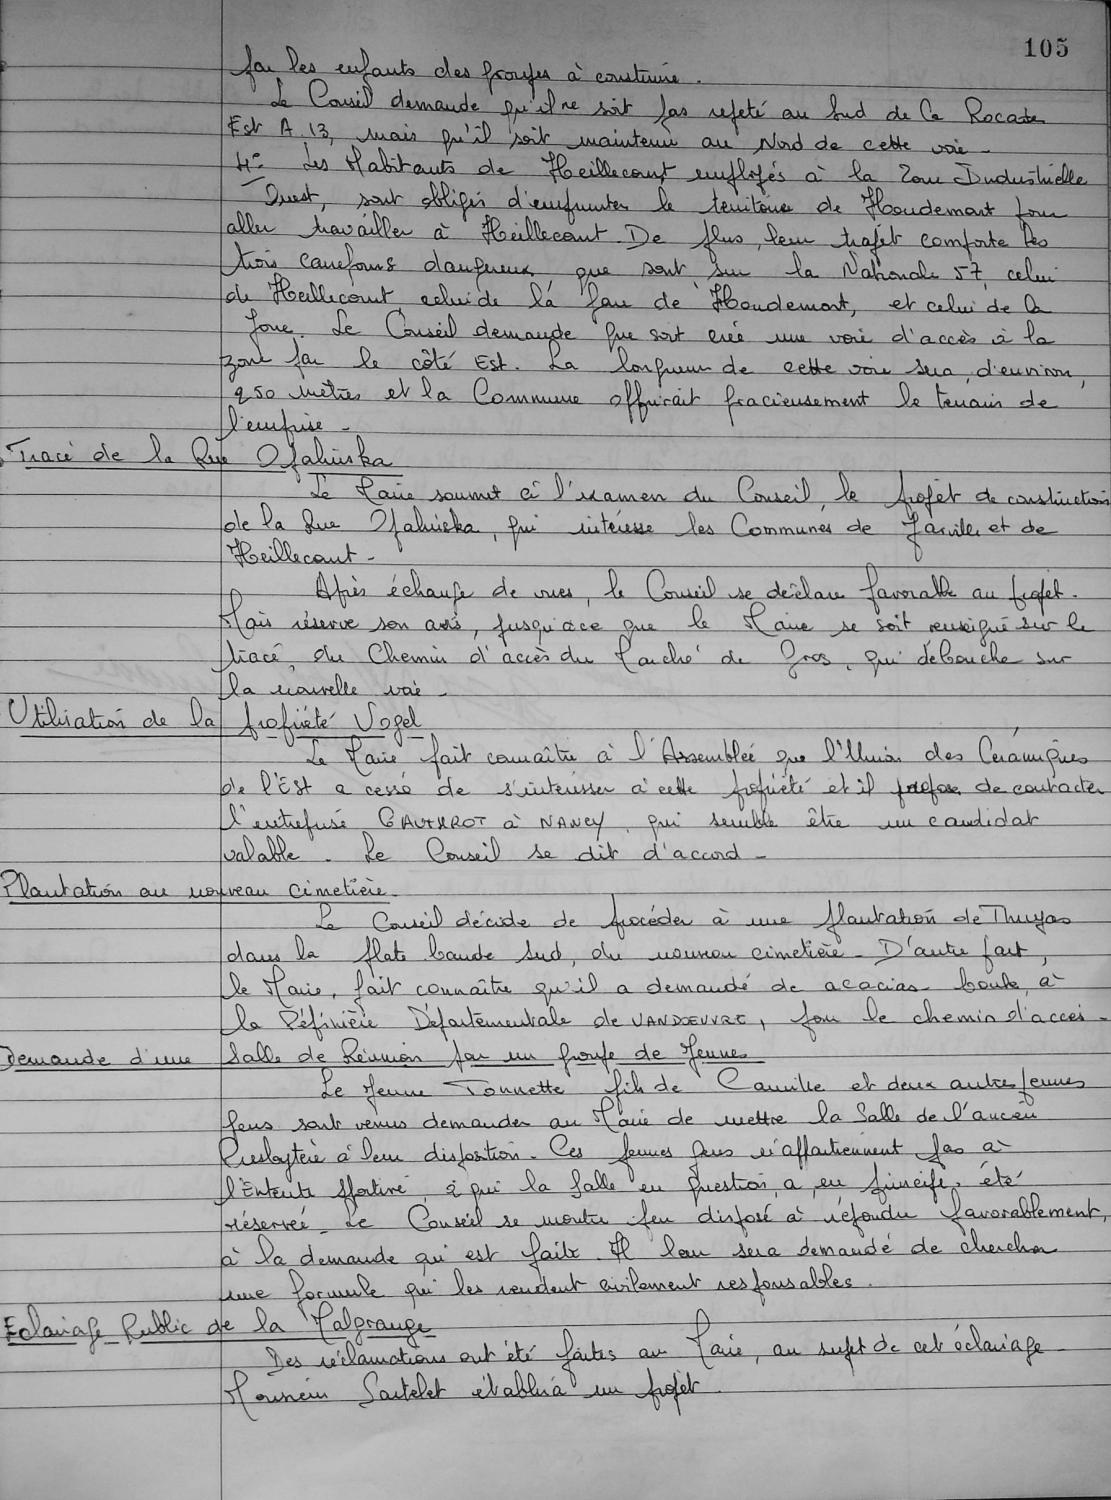 105
par les enfants des groupes à construire.
Le Conseil demande qu'il ne soit pas rejeté au Sud de la Rocade
Est A.13, mais qu'il soit maintenu au Nord de cette voie -
4° - Les Habitants de Heillecourt employés à la Zone Industrielle
Ouest, sont obligés d'emprunter le territoire de Houdemont pour
aller travailler à Heillecourt. De plus, leur trajet comporte les
trois carrefours dangereux que sont sur la Nationale 57, celui
de Heillecourt celui de la gare de Houdemont, et celui de la
Zone. Le Conseil demande que soit créé une voie d'accès à la
zone par le côté Est. La longueur de cette voie sera, d'environ,
250 mètres et la Commune offrirait gracieusement le terrain de
l'emprise -
Tracé de la Rue Opalinska
Le Maire soumet à l'examen du Conseil, le projet de construction
de la Rue Opalinska, qui intéresse les Communes de Jarville et de
Heillecourt -
Après échange de vues, le Conseil se déclare favorable au projet.
Mais réserve son avis, jusqu'à ce que le Maire se soit renseigné sur le
tracé, du Chemin d'accès du Marché de Gros, qui débouche sur
la nouvelle voie -
Utilisation de la propriété Vogel
Le Maire fait connaître à l'Assemblée que l'Union des Céramiques
de l'Est a cessé de s'intéresser à cette propriété et il propose de contacter
l'entreprise GAUTHROT à NANCY, qui semble être un candidat
valable. Le Conseil se dit d'accord -
Plantation au nouveau cimetière.
Le Conseil décide de procéder à une plantation de Thuyas
dans la plate bande Sud, du nouveau cimetière - D'autre part,
le Maire, fait connaître qu'il a demandé de acacias-boule, à
la Pépinière Départementale de VANDOEUVRE, pour le chemin d'accès -
Demande d'une Salle de Réunion par un groupe de Jeunes
Le Jeune Tonnette fils de Camille et deux autres jeunes
gens sont venus demander au Maire de mettre la Salle de l'ancien
Presbytère à leur disposition - Ces jeunes gens n'appartiennent pas à
l'Entente Sportive, à qui la Salle en question, a, en principe, été
réservée. Le Conseil se montre peu disposé à répondre favorablement,
à la demande qui est faite. Il leur sera demandé de chercher
une formule qui les rendent civilement responsables.
Eclairage Public de la Malgrange
Des réclamations ont été faites au Maire, au sujet de cet éclairage -
Monsieur Sartelet établira un projet.